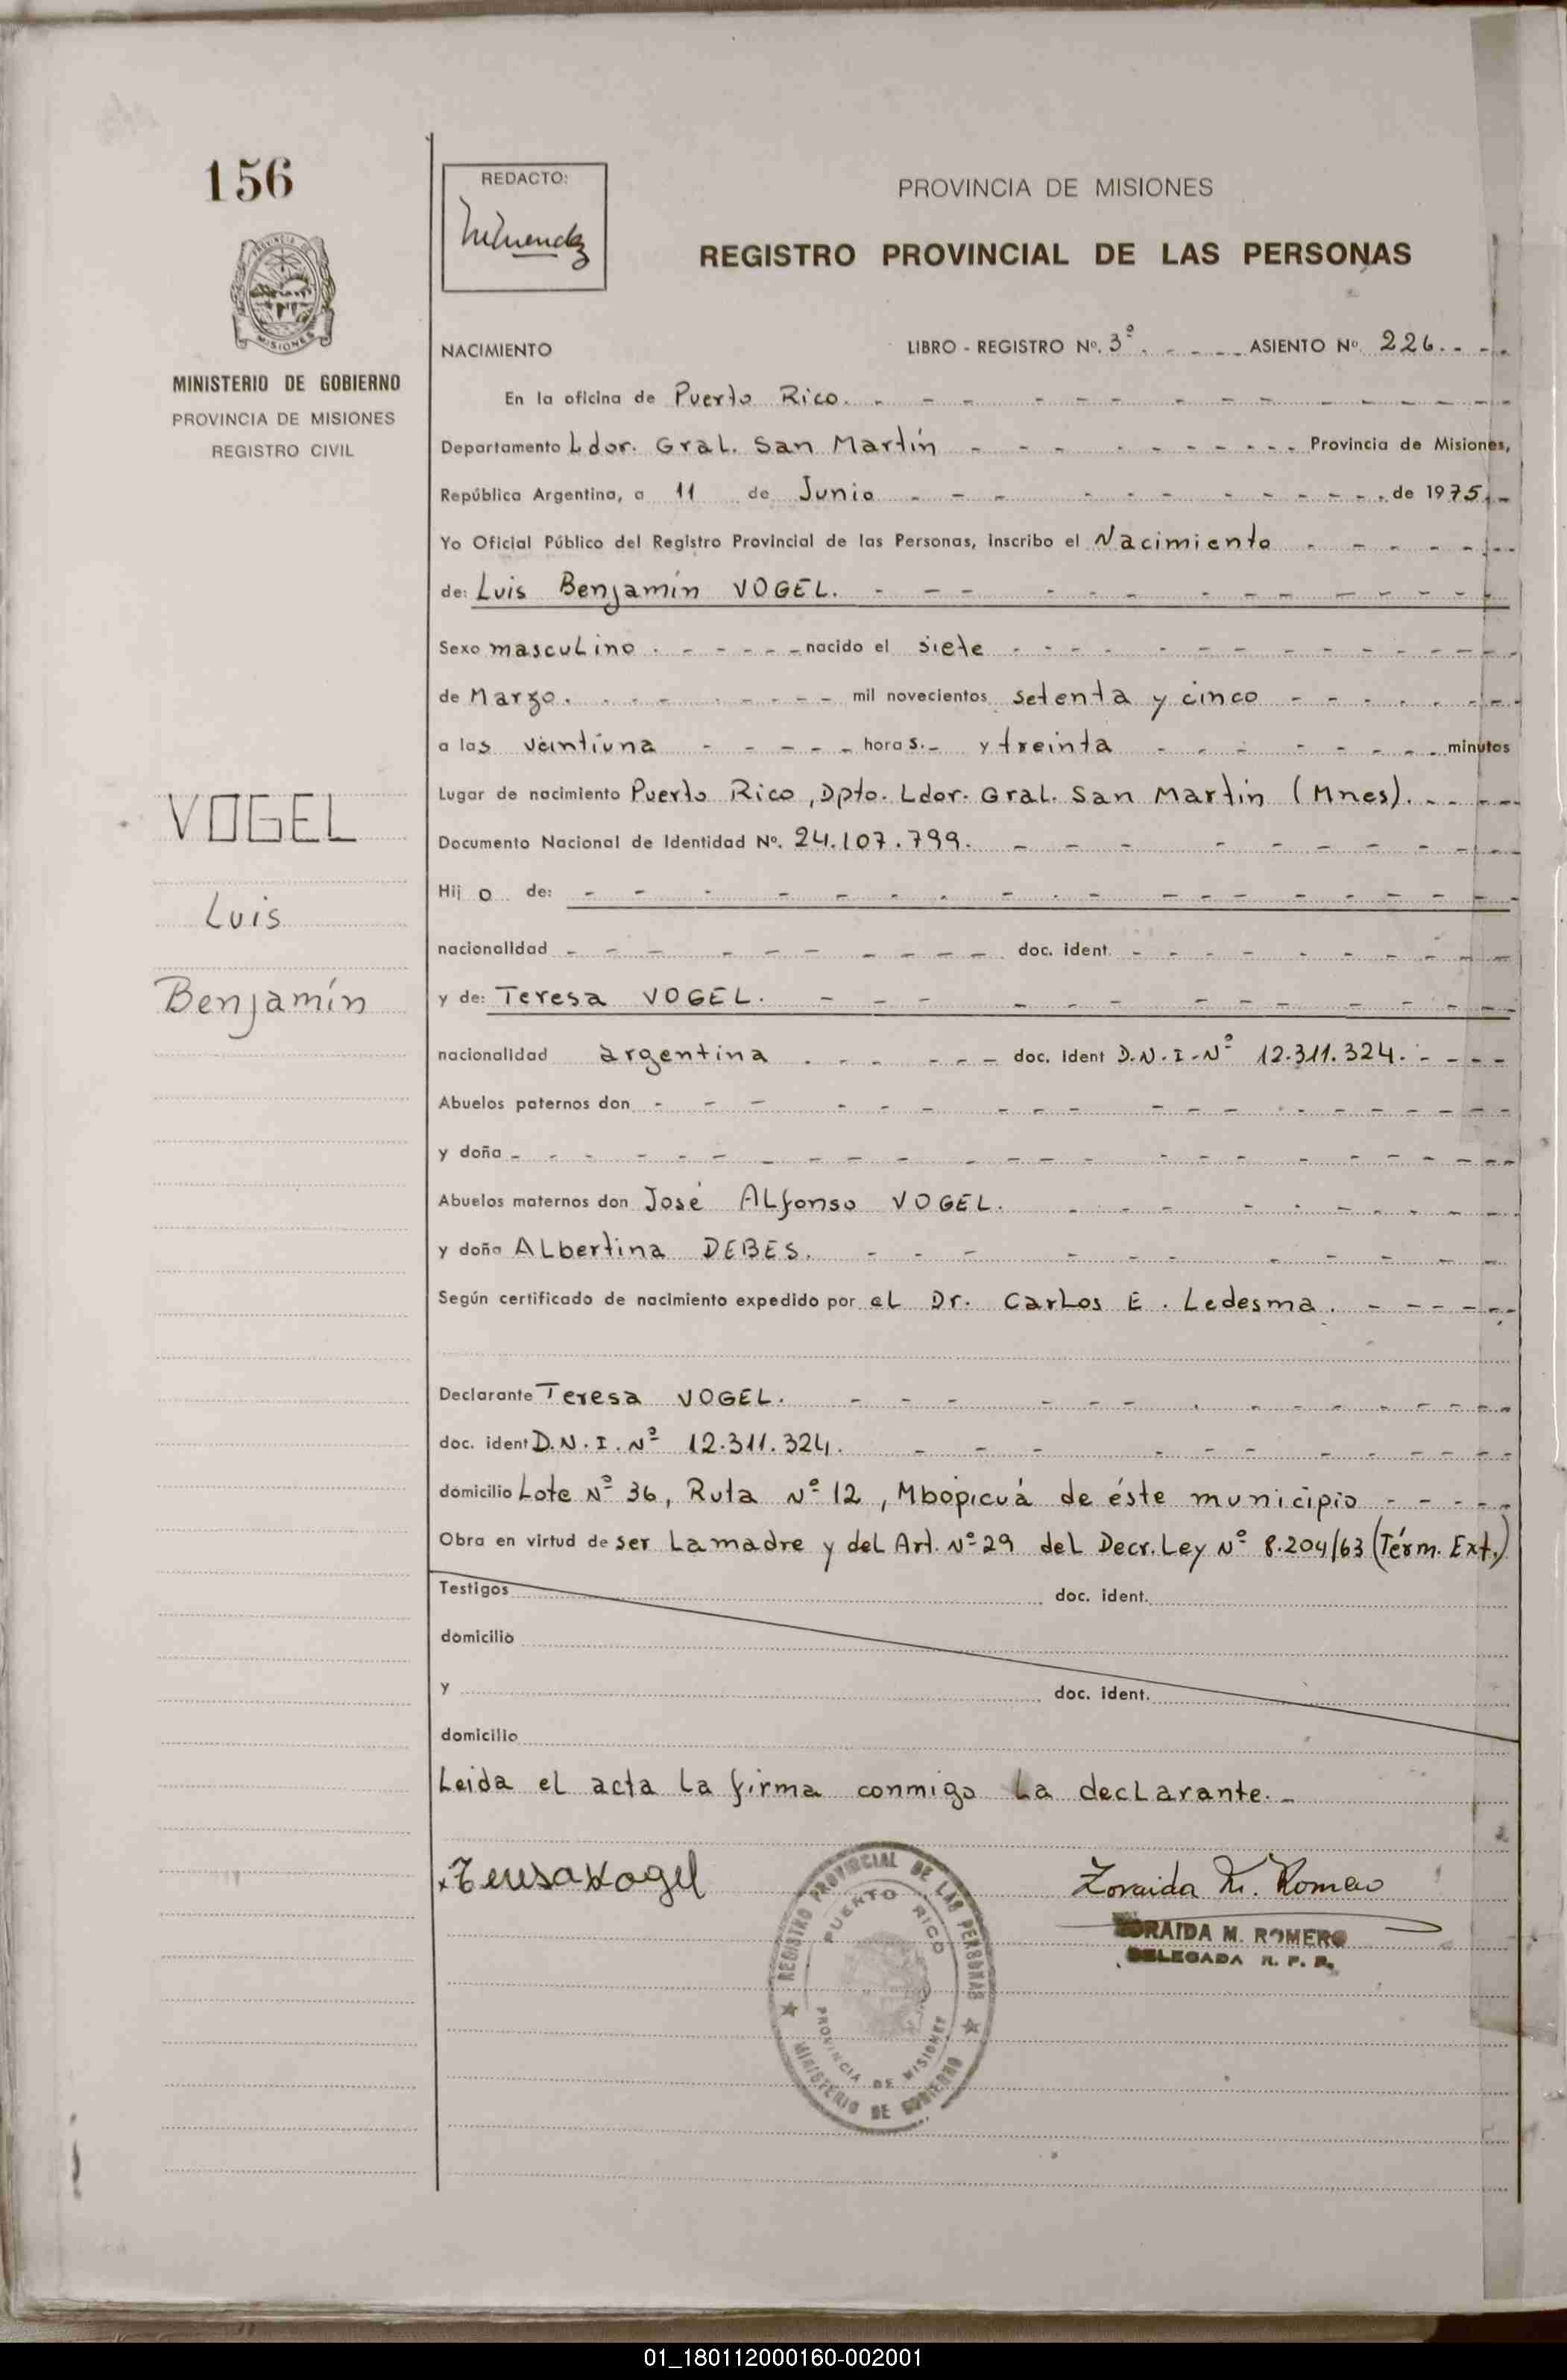 156
REDACTO:
PROVINCIA DE MISIONES
REGISTRO PROVINCIAL DE LAS PERSONAS
MISIONES
MINISTERIO DE GOBIERNO
PROVINCIA DE MISIONES
REGISTRO CIVIL
NACIMIENTO LIBRO - REGISTRO Nº. 3º. ASIENTO Nº 226.
En la oficina de Puerto Rico.
Departamento Ldor. Gral. San Martín Provincia de Misiones,
República Argentina, a 11 de Junio de 1975.
Yo Oficial Público del Registro Provincial de las Personas, inscribo el Nacimiento
de: Luis Benjamín VOGEL.
Sexo masculino nacido el siete
de Marzo. mil novecientos setenta y cinco
a las veintiuna horas. y treinta minutos
Lugar de nacimiento Puerto Rico, Dpto. Ldor. Gral. San Martín (Mnes).
Documento Nacional de Identidad Nº. 24.107.799.
Hijo de:
nacionalidad doc. ident.
y de: Teresa VOGEL.
nacionalidad argentina doc. ident D.N.I.Nº 12.311.324.
Abuelos paternos don
y doña
Abuelos maternos don José Alfonso VOGEL.
y doña Albertina DEBES.
Según certificado de nacimiento expedido por el Dr. Carlos E. Ledesma.
Declarante Teresa VOGEL.
doc. ident D.N.I. Nº 12.311.324.
domicilio Lote Nº 36, Ruta Nº 12, Mbopicuá de éste municipio
Obra en virtud de ser la madre y del Art. Nº 29 del Decr. Ley Nº 8.204/63 (Térm. Ext.)
Testigos doc. ident.
domicilio
y doc. ident.
domicilio
Leida el acta la firma conmigo la declarante.
VOGEL
Luis
Benjamín
Teresa Vogel
Zoraida M. Romero
ZORAIDA M. ROMERO
DELEGADA R. P. P.
REGISTRO PROVINCIAL DE LAS PERSONAS
PUERTO RICO
PROVINCIA DE MISIONES
MINISTERIO DE GOBIERNO
01_180112000160-002001